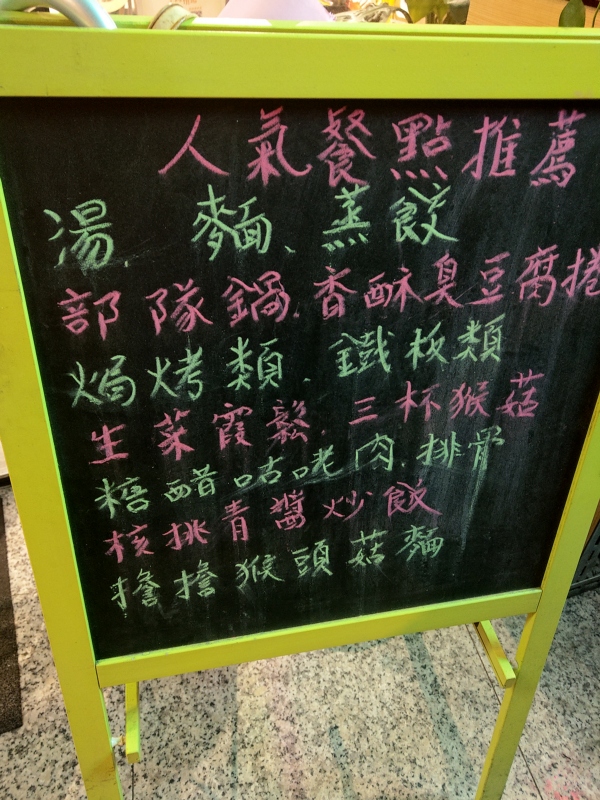 人氣餐點推薦
湯、麵、蒸餃
部隊鍋、香酥臭豆腐捲
焗烤類、鐵板類
生菜霞鬆、三杯猴菇
糖醋咕咾肉、排骨
核挑青醬炒餃
擔擔猴頭菇麵